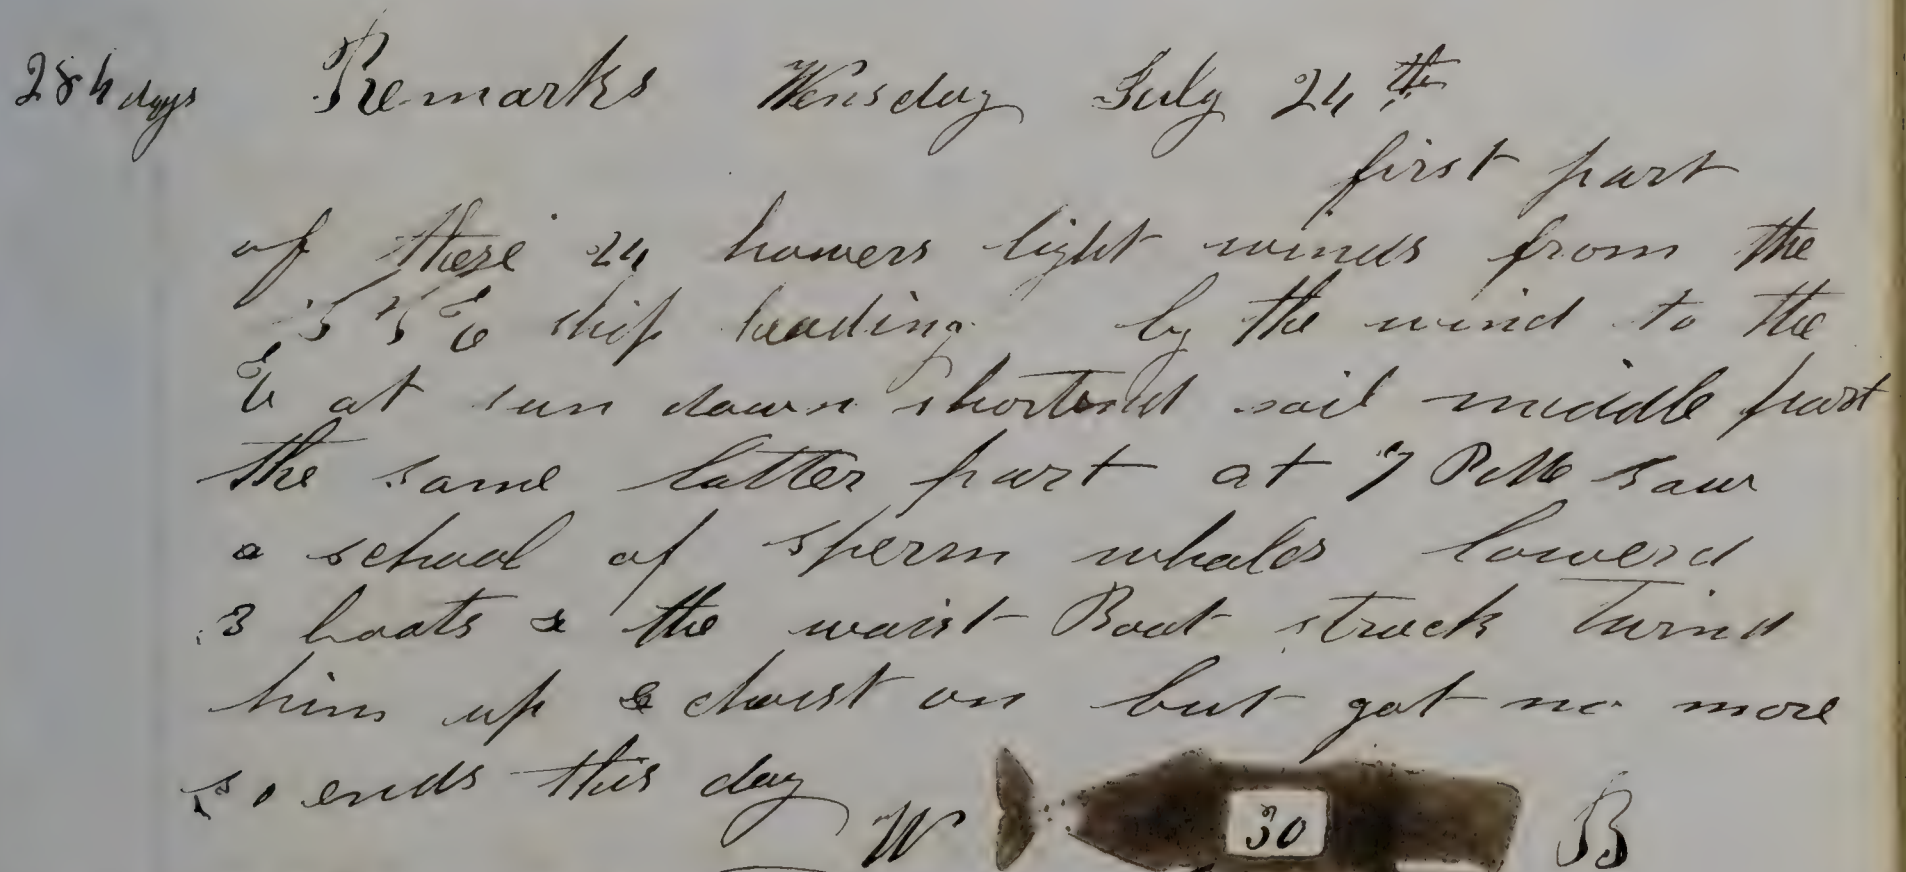 284 days Remarks Wensday July 24th
first part
of these 24 howers light winds from the
S S E ship heading by the wind to the
E at sun down shortend sail middle part
the same latter part at 7 P M saw
a school of sperm whales lowerd
3 boats & the waist Boat struck turnd
him up & chaist on but got no more
so ends this day
W 30 B